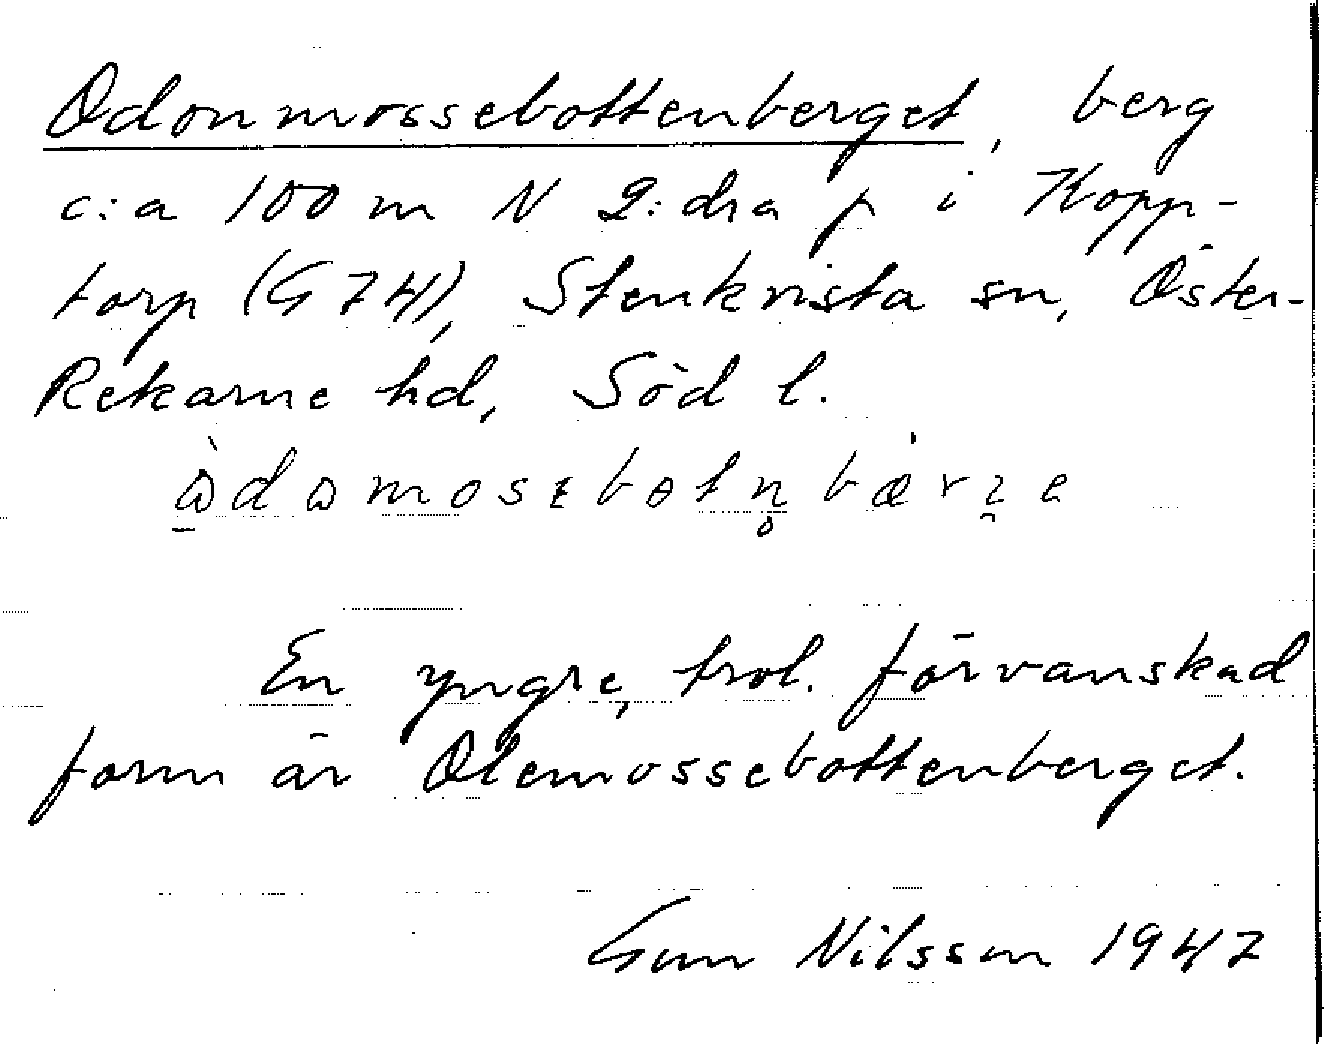 Odonmossebottenberget, berg
c:a 100 m N 2:dra p i Kopp-
torp (G 74), Stenkvista sn, Öster-
Rekarne hd, Söd l.
En yngre, trol. förvanskad
form är Olemossebottenberget.
Gun Nilsson 1947